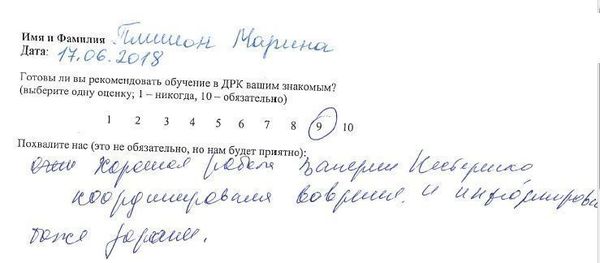 Имя и Фамилия Марина
Дата: 17.06.2018
Готовы ли вы рекомендовать обучение в ДРК вашим знакомым?
(выберите одну оценку; 1 – никогда, 10 – обязательно)
1 2 3 4 5 6 7 8 9 10
Похвалите нас (это не обязательно, но нам будет приятно):
хорошая работа Валерии Нестеренко
координировала вовремя, и информирова
тоже заранее.